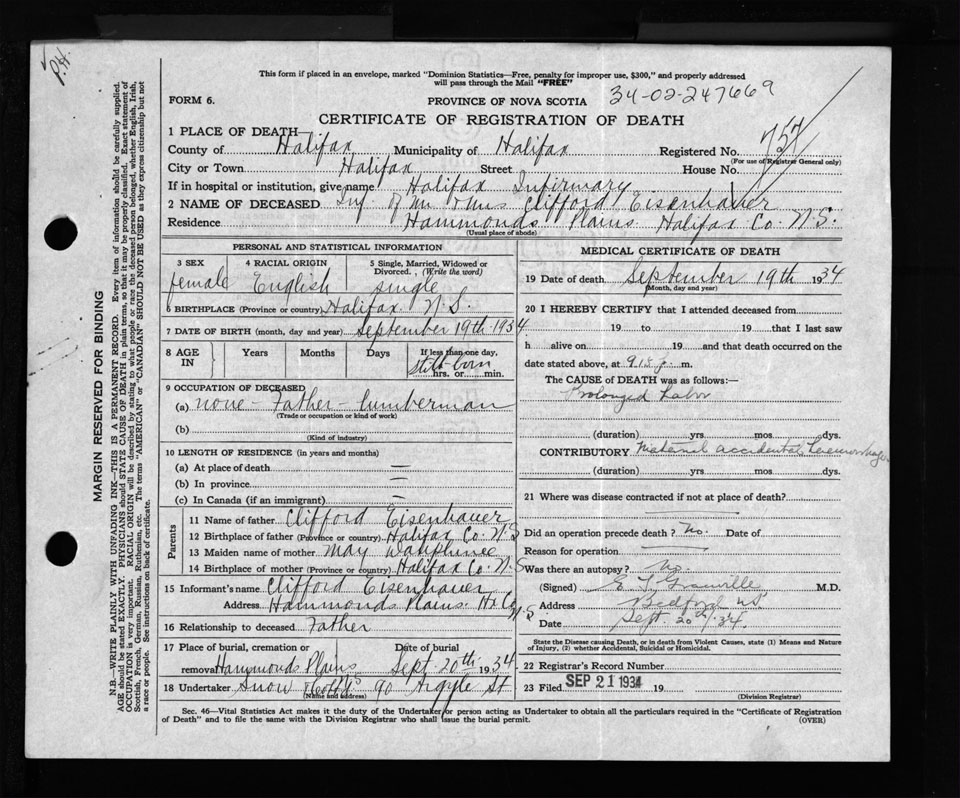 P.H.
This form if placed in an envelope, marked "Dominion Statistics—Free, penalty for improper use, $300," and properly addressed
will pass through the Mail "FREE"
FORM 6.
PROVINCE OF NOVA SCOTIA 34-02-247669
CERTIFICATE OF REGISTRATION OF DEATH
1 PLACE OF DEATH—
County of Halifax Municipality of Halifax Registered No. 757
(For use of Registrar General only)
City or Town Halifax Street House No.
If in hospital or institution, give name Halifax Infirmary
2 NAME OF DECEASED Inf. of Mr & Mrs Clifford Eisenhauer
Residence Hammonds Plains Halifax Co. N.S.
(Usual place of abode)
PERSONAL AND STATISTICAL INFORMATION
3 SEX 4 RACIAL ORIGIN 5 Single, Married, Widowed or
Divorced. (Write the word)
female English single
6 BIRTHPLACE (Province or country) Halifax N.S.
7 DATE OF BIRTH (month, day and year) September 19th 1934
8 AGE IN Years Months Days If less than one day,
Still-born
hrs. or min.
9 OCCUPATION OF DECEASED
(a) none - Father - lumberman
(Trade or occupation or kind of work)
(b)
(Kind of industry)
10 LENGTH OF RESIDENCE (in years and months)
(a) At place of death —
(b) In province —
(c) In Canada (if an immigrant) —
Parents
11 Name of father Clifford Eisenhauer
12 Birthplace of father (Province or country) Halifax Co. N.S
13 Maiden name of mother May
14 Birthplace of mother (Province or country) Halifax Co. N.S
15 Informant's name Clifford Eisenhauer
Address Hammonds Plains. Hx Co N.S
16 Relationship to deceased Father
17 Place of burial, cremation or Date of burial
removal Hammonds Plains Sept. 20th 1934
18 Undertaker Snow & Co. 90 Argyle St
(Name and address)
MEDICAL CERTIFICATE OF DEATH
19 Date of death September 19th 1934
(Month, day and year)
20 I HEREBY CERTIFY that I attended deceased from
19 to 19 that I last saw
h alive on 19 and that death occurred on the
date stated above, at m.
The CAUSE of DEATH was as follows:—
Prolonged Labor
(duration) yrs mos dys.
CONTRIBUTORY Maternal accidental
(duration) yrs mos dys.
21 Where was disease contracted if not at place of death?
Did an operation precede death? No. Date of
Reason for operation
Was there an autopsy? No.
(Signed) E L Granville M.D.
Address Bedford NS
Date Sept. 20th/34.
State the Disease causing Death, or in death from Violent Causes, state (1) Means and Nature
of Injury, (2) whether Accidental, Suicidal or Homicidal.
22 Registrar's Record Number
23 Filed SEP 21 1934 19
(Division Registrar)
Sec. 46—Vital Statistics Act makes it the duty of the Undertaker or person acting as Undertaker to obtain all the particulars required in the "Certificate of Registration
of Death" and to file the same with the Division Registrar who shall issue the burial permit. (OVER)
MARGIN RESERVED FOR BINDING
N.B.—WRITE PLAINLY WITH UNFADING INK—THIS IS A PERMANENT RECORD. Every item of information should be carefully supplied.
AGE should be stated EXACTLY. PHYSICIANS should STATE CAUSE OF DEATH in plain terms, so that it may be properly classified. Exact statement of
OCCUPATION is very important. RACIAL ORIGIN will be described by stating to what people or race the deceased person belonged, whether English, Irish,
Scottish, French, German, Russian, Ruthenian, etc. The terms "AMERICAN" or "CANADIAN" SHOULD NOT BE USED as they express citizenship but not
a race or people. See instructions on back of certificate.